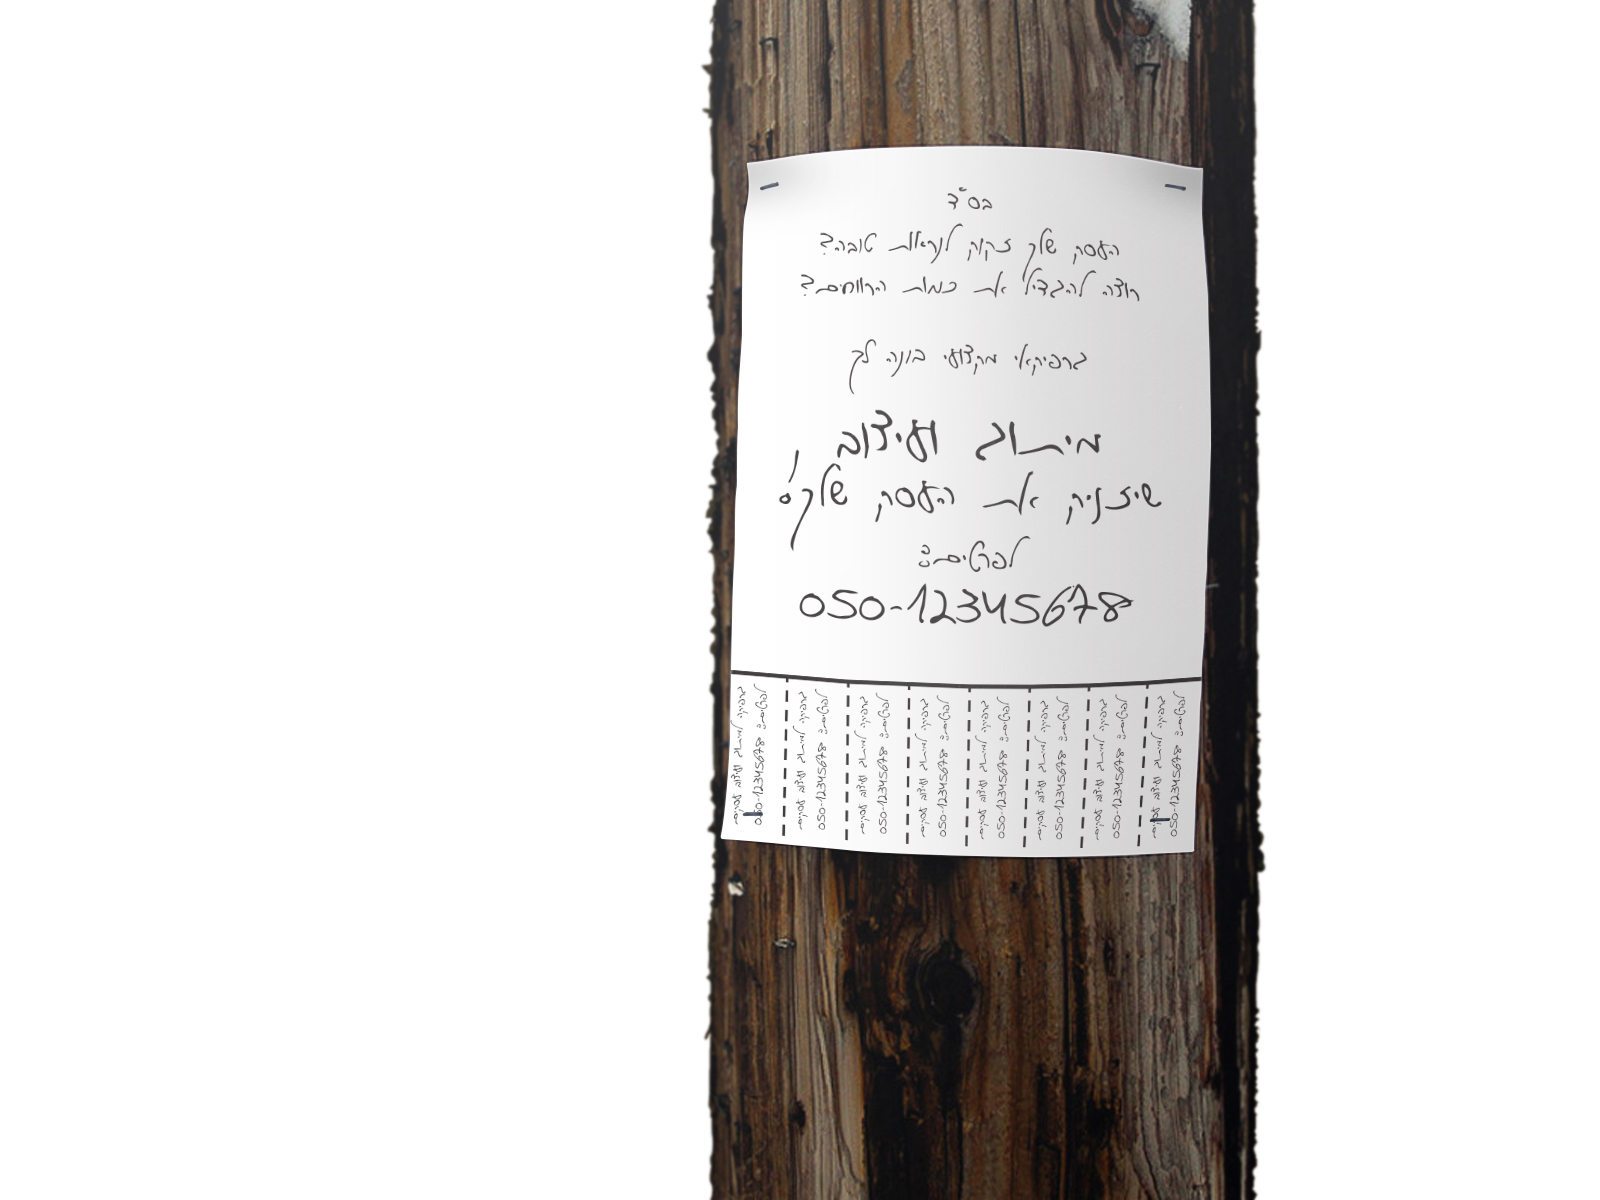 בס"ד
העסק שלך זקוק לנראות טובה?
רוצה להגדיל את כמות הרווחים?
גרפיקאי מקצועי בונה לך
מיתוג ועיצוב
שיזניק את העסק שלך!
לפרטים:
050-12345678
גרפיקה מיתוג ועיצוב עסקים
לפרטים: 050-12345678
גרפיקה מיתוג ועיצוב עסקים
לפרטים: 050-12345678
גרפיקה מיתוג ועיצוב עסקים
לפרטים: 050-12345678
גרפיקה מיתוג ועיצוב עסקים
לפרטים: 050-12345678
גרפיקה מיתוג ועיצוב עסקים
לפרטים: 050-12345678
גרפיקה מיתוג ועיצוב עסקים
לפרטים: 050-12345678
גרפיקה מיתוג ועיצוב עסקים
לפרטים: 050-12345678
גרפיקה מיתוג ועיצוב עסקים
לפרטים: 050-12345678